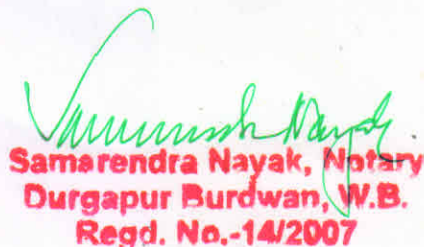 Samarendra Nayak
Samarendra Nayak, Notary
Durgapur Burdwan, W.B.
Regd. No.-14/2007